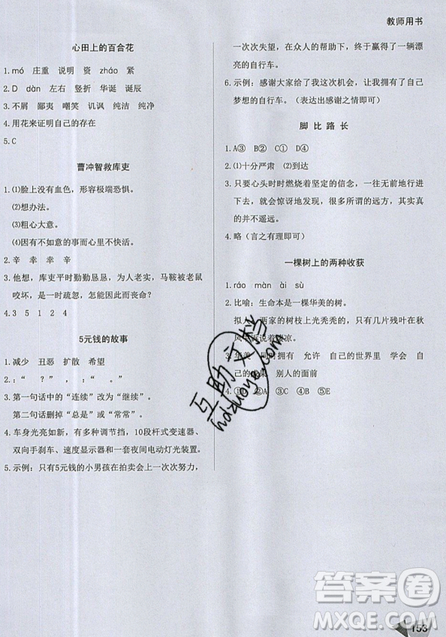 教师用书
心田上的百合花
1. mó 庄重 说明 瓷 zhāo 紧
2. D dàn 左右 竖折 华诞 诞辰
3. 不屑 鄙夷 嘲笑 讥讽 纯洁 纯净
4. 用花来证明自己的存在
5. C
曹冲智救库吏
1. ⑴脸上没有血色，形容极端恐惧。
⑵想办法。
⑶粗心大意。
⑷因有不如意的事情而心里不高兴。
2. 辛 幸 幸 辛
3. 示例：他想，库吏平时勤勤恳恳，为人老实。马鞍被老鼠
咬坏，是一时疏忽，怎能怪他呢？
4. 3 5 1 2 4
5元钱的故事
1. 减少 丑恶 扩散 希望
2. ： “ ？ ” ， “ 。”
3. 第一句话中的“连续”改为“继续”。
第二句话删掉“总是”或“常常”。
4. 车身光亮如新，有多种排挡，10段杆式变速器、
双向手刹车、速度显示器和一套夜间电动灯光装置。
5. 示例：只有5元钱的小男孩在拍卖会上一次次努力，
一次次失望，在众人的帮助下，终于赢得了一辆漂
亮的自行车。
6. 示例：感谢大家给了我这次机会，让我拥有了自己
梦想的自行车。（表达出感谢之情即可）
脚比路长
1. A③ B② C① D④
2. ⑴十分严肃 ⑵到达
3. 只要心头时时燃烧着坚定的信念，一往无前地行进
下去，就会惊讶地发现，很多所谓的远方，其实真
的并不遥远。
4. 略（言之有理即可）
一棵树上的两种收获
1. ráo màn ài sù
2. 比喻：生命本是一棵华美的树。
拟人：两家的树枝上光秃秃的，只有几片残叶可
3. 拥有 允许 自己的世界 自己
别人的面前
4. ①A ②C
互助文档
hdzuoye.com
答案圈
MXQE.COM
153